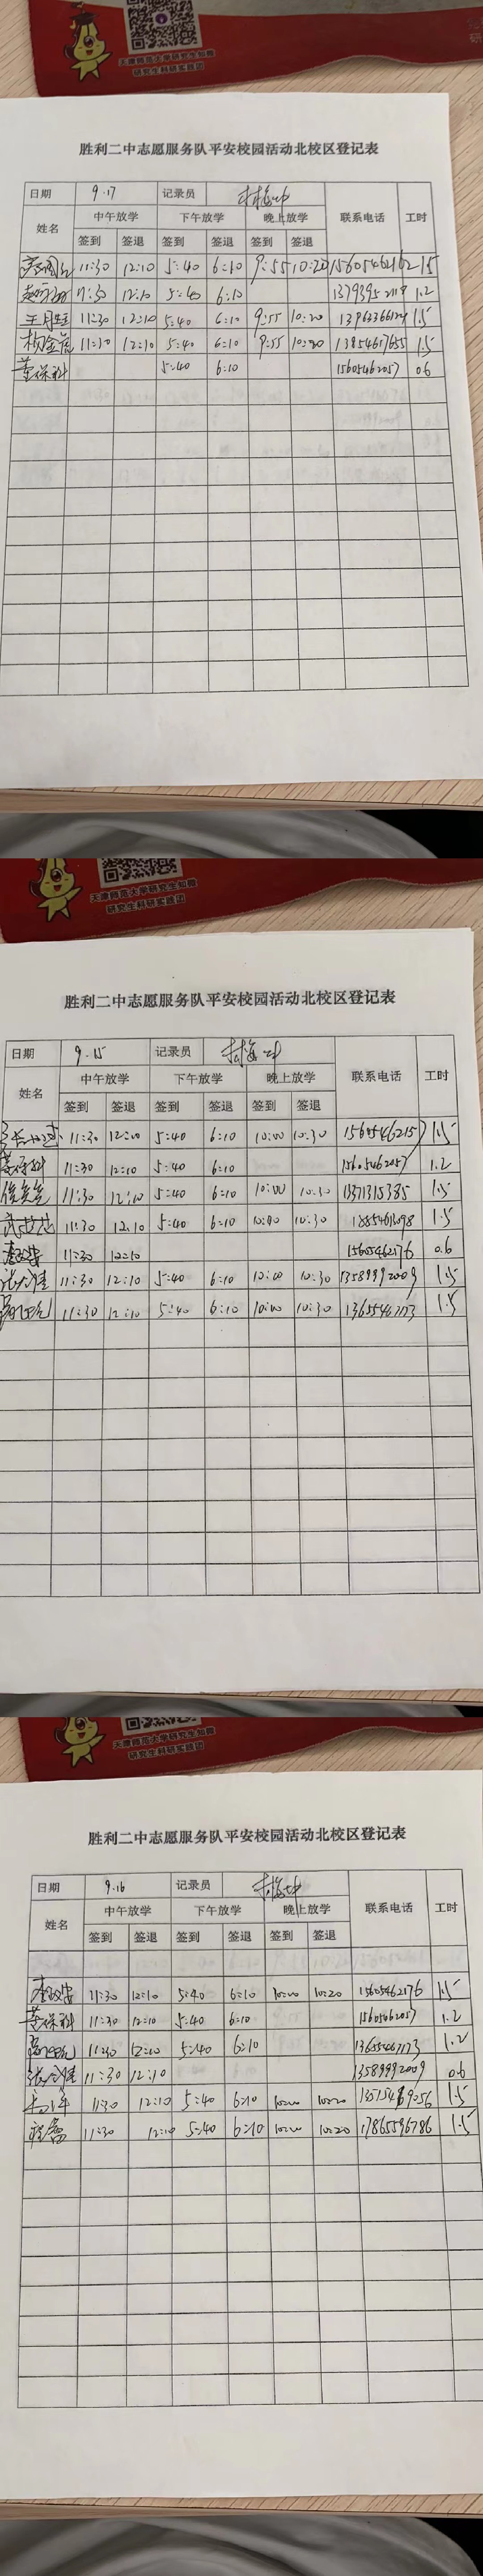 天津师范大学研究生知微
研究生科研实践团
胜利二中志愿服务队平安校园活动北校区登记表
日期 9.17 记录员
姓名 中午放学 下午放学 晚上放学 联系电话 工时
签到 签退 签到 签退 签到 签退
11:30 12:10 5:40 6:10 9:55 10:20 15605462162 1.5
11:30 12:10 5:40 6:10 1.2
王月生 11:30 12:10 5:40 6:10 9:55 10:20 1.5
12:10 5:40 6:10 9:55 10:20 13854617655 1.5
董保科 5:40 6:10 15605462057 0.6
天津师范大学研究生知微
研究生科研实践团
胜利二中志愿服务队平安校园活动北校区登记表
日期 9.15 记录员
姓名 中午放学 下午放学 晚上放学 联系电话 工时
签到 签退 签到 签退 签到 签退
11:30 12:00 5:40 6:10 10:00 10:30 15605462157 1.5
董保科 11:30 12:10 5:40 6:10 15605462057 1.2
11:30 12:10 5:40 6:10 10:00 10:30 13371315385 1.5
11:30 12:10 5:40 6:10 10:00 10:30 1.5
11:30 12:10 15605462176 0.6
11:30 12:10 5:40 6:10 10:00 10:30 13589992009 1.5
11:30 12:10 5:40 6:10 10:00 10:30 13655467173 1.5
天津师范大学研究生知微
研究生科研实践团
胜利二中志愿服务队平安校园活动北校区登记表
日期 9.16 记录员
姓名 中午放学 下午放学 晚上放学 联系电话 工时
签到 签退 签到 签退 签到 签退
11:30 12:10 5:40 6:10 10:00 10:20 15605462176 1.5
董保科 11:30 12:10 5:40 6:10 15605462057 1.2
11:30 12:10 5:40 6:10 13655467173 1.2
11:30 12:10 13589992009 0.6
11:30 12:10 5:40 6:10 10:00 10:20 1.5
11:30 12:10 5:40 6:10 10:00 10:20 17865596786 1.5